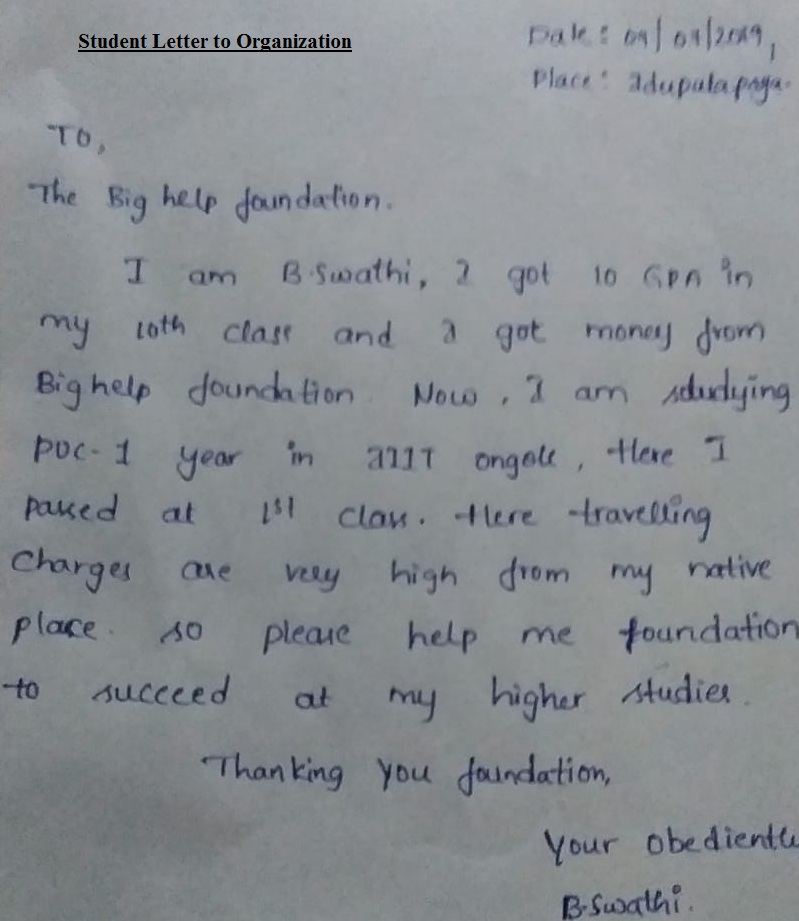 Student Letter to Organization
Date: 09/09/2019,
Place: Idupulapaya.
To,
The Big help foundation.
I am B.Swathi, I got 10 GPA in
my 10th class and I got money from
Big help foundation. Now, I am studying
PUC-1 year in IIIT ongole, Here I
passed at 1st class. Here travelling
charges are very high from my native
place. so please help me foundation
to succeed at my higher studies.
Thanking you foundation,
Your obediently
B.Swathi.